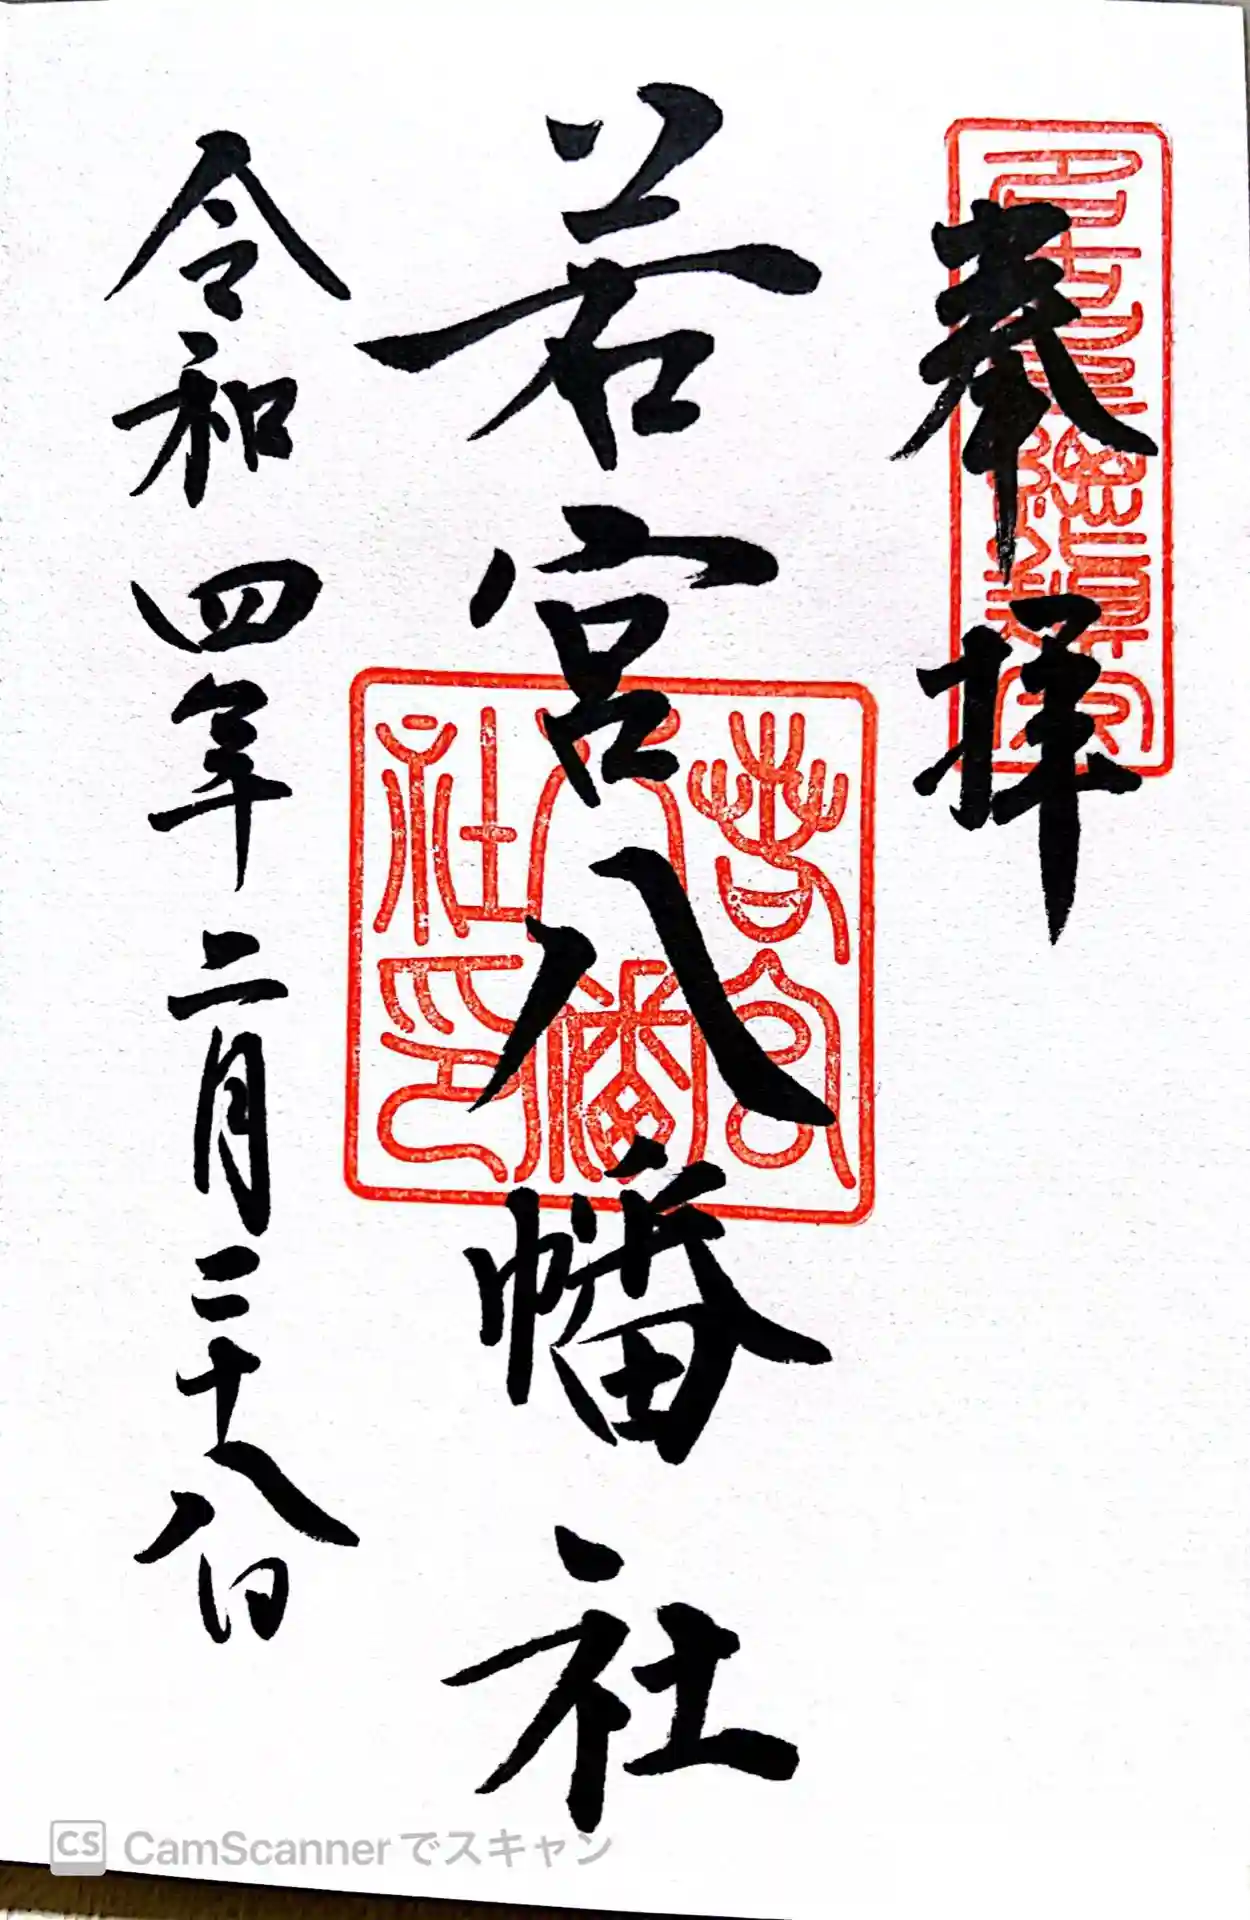 奉拝
若宮八幡社
令和四年二月二十八日
若宮八幡社印
CS CamScannerでスキャン